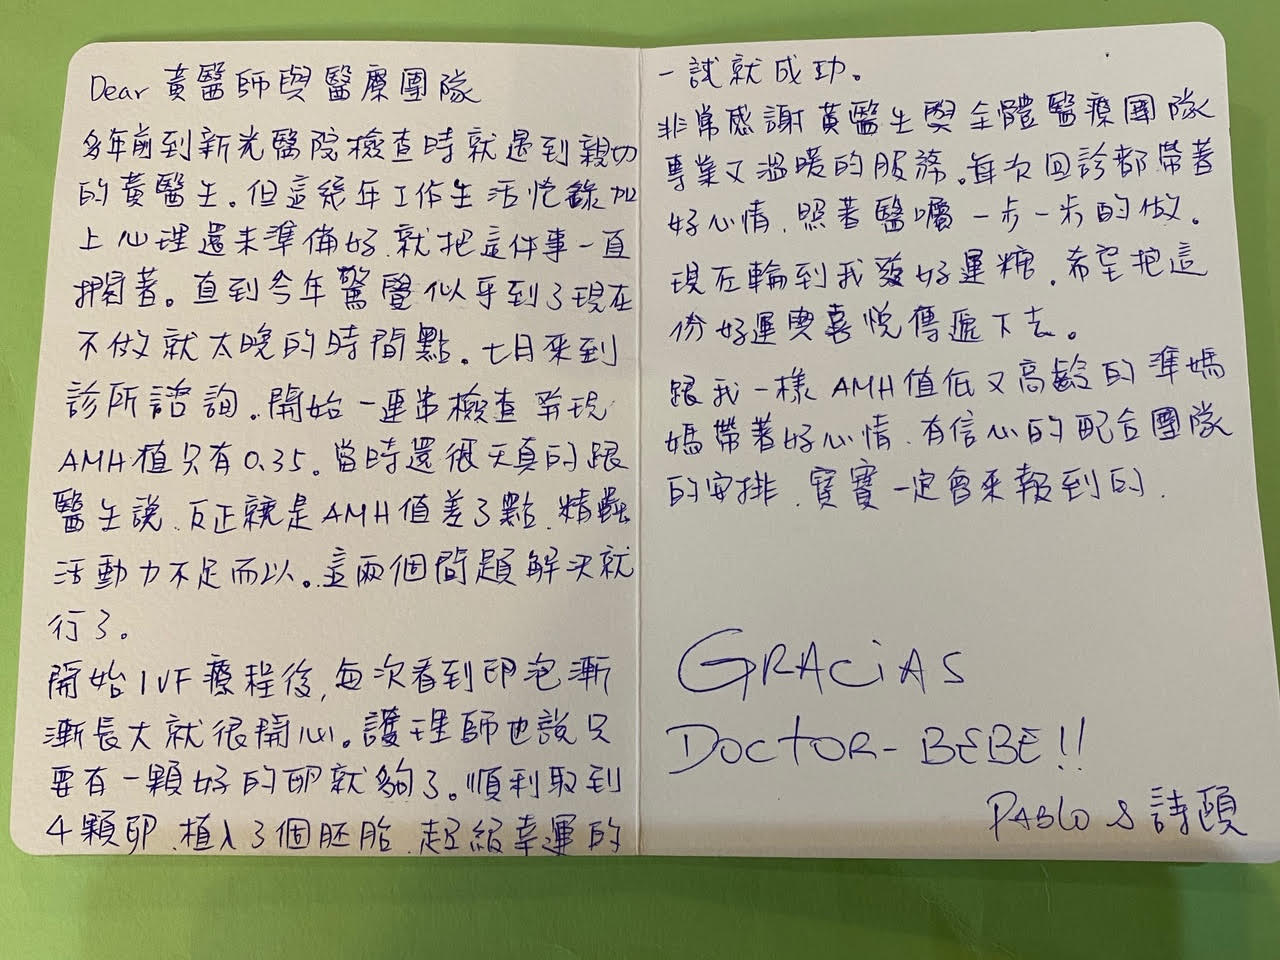 Dear 黃醫師與醫療團隊
多年前到新光醫院檢查時就遇到親切
的黃醫生。但這幾年工作生活忙錄加
上心理還未準備好,就把這件事一直
擱著。直到今年驚覺似乎到了現在
不做就太晚的時間點。七月來到
診所諮詢。開始一連串檢查發現
AMH值只有0.35。當時還很天真的跟
醫生說,反正就是AMH值差了點,精蟲
活動力不足而以。這兩個問題解決就
行了。
開始IVF療程後,每次看到卵泡漸
漸長大就很開心。護理師也說只
要有一顆好的卵就夠了。順利取到
4顆卵,植入3個胚胎,超級幸運的
一試就成功。
非常感謝黃醫生與全體醫療團隊
專業又溫暖的服務。每次回診都帶著
好心情,照著醫囑一步一步的做。
現在輪到我發好運糖,希望把這
份好運與喜悅傳遞下去。
跟我一樣AMH值低又高齡的準媽
媽帶著好心情,有信心的配合團隊
的安排,寶寶一定會來報到的.
GRACiAS
DOCTOR-BEBE!!
PABLO & 詩頤